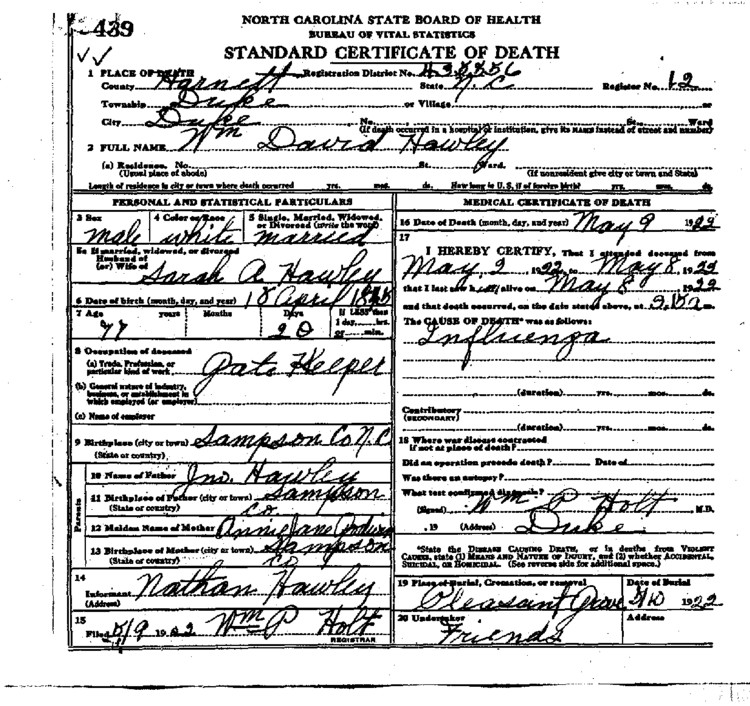 439
NORTH CAROLINA STATE BOARD OF HEALTH
BUREAU OF VITAL STATISTICS
STANDARD CERTIFICATE OF DEATH
1 PLACE OF DEATH
Registration District No.
County Harnett State N. C Register No. 12
Township Duke or Village or
City Duke No. St. Ward
(If death occurred in a hospital or institution, give its NAME instead of street and number)
2 FULL NAME Wm David Hawley
(a) Residence. No. St. Ward.
(Usual place of abode) (If nonresident give city or town and State)
Length of residence in city or town where death occurred yrs. mos. ds. How long in U. S., if of foreign birth? yrs. mos. ds.
PERSONAL AND STATISTICAL PARTICULARS
3 Sex 4 Color or Race 5 Single, Married, Widowed, or Divorced (write the word)
male white married
5a If married, widowed, or divorced
Husband of
(or) Wife of Sarah A Hawley
6 Date of birth (month, day, and year) 18 April
7 Age years Months Days If LESS than
1 day, hrs.
77 20 or min.
8 Occupation of deceased
(a) Trade, Profession, or
particular kind of work Gate Keeper
(b) General nature of industry,
business, or establishment in
which employed (or employer)
(c) Name of employer
9 Birthplace (city or town) Sampson Co N. C
(State or country)
Parents
10 Name of Father Jno. Hawley
11 Birthplace of Father (city or town) Sampson
(State or country) Co.
12 Maiden Name of Mother Annie Jane
13 Birthplace of Mother (city or town) Sampson
(State or country) Co
14
Informant Nathan Hawley
(Address)
15
Filed 5/9 1922 Wm P Holt
REGISTRAR
MEDICAL CERTIFICATE OF DEATH
16 Date of Death (month, day, and year) May 9 1922
17
I HEREBY CERTIFY, That I attended deceased from
May 2 1922, to May 8, 1922
that I last saw him alive on May 8, 1922
and that death occurred, on the date stated above, at m.
The CAUSE OF DEATH* was as follows:
Influenza
(duration) yrs. mos. ds.
Contributory
(SECONDARY)
(duration) yrs. mos. ds.
18 Where was disease contracted
if not at place of death?
Did an operation precede death? Date of
Was there an autopsy?
What test confirmed diagnosis?
(Signed) Wm P Holt M.D.
, 19 (Address) Duke
*State the DISEASE CAUSING DEATH, or in deaths from VIOLENT
CAUSES, state (1) MEANS AND NATURE OF INJURY, and (2) whether ACCIDENTAL,
SUICIDAL, or HOMICIDAL. (See reverse side for additional space.)
19 Place of Burial, Cremation, or removal Date of Burial
Pleasant Grove 5/10 1922
20 Undertaker Address
Friends